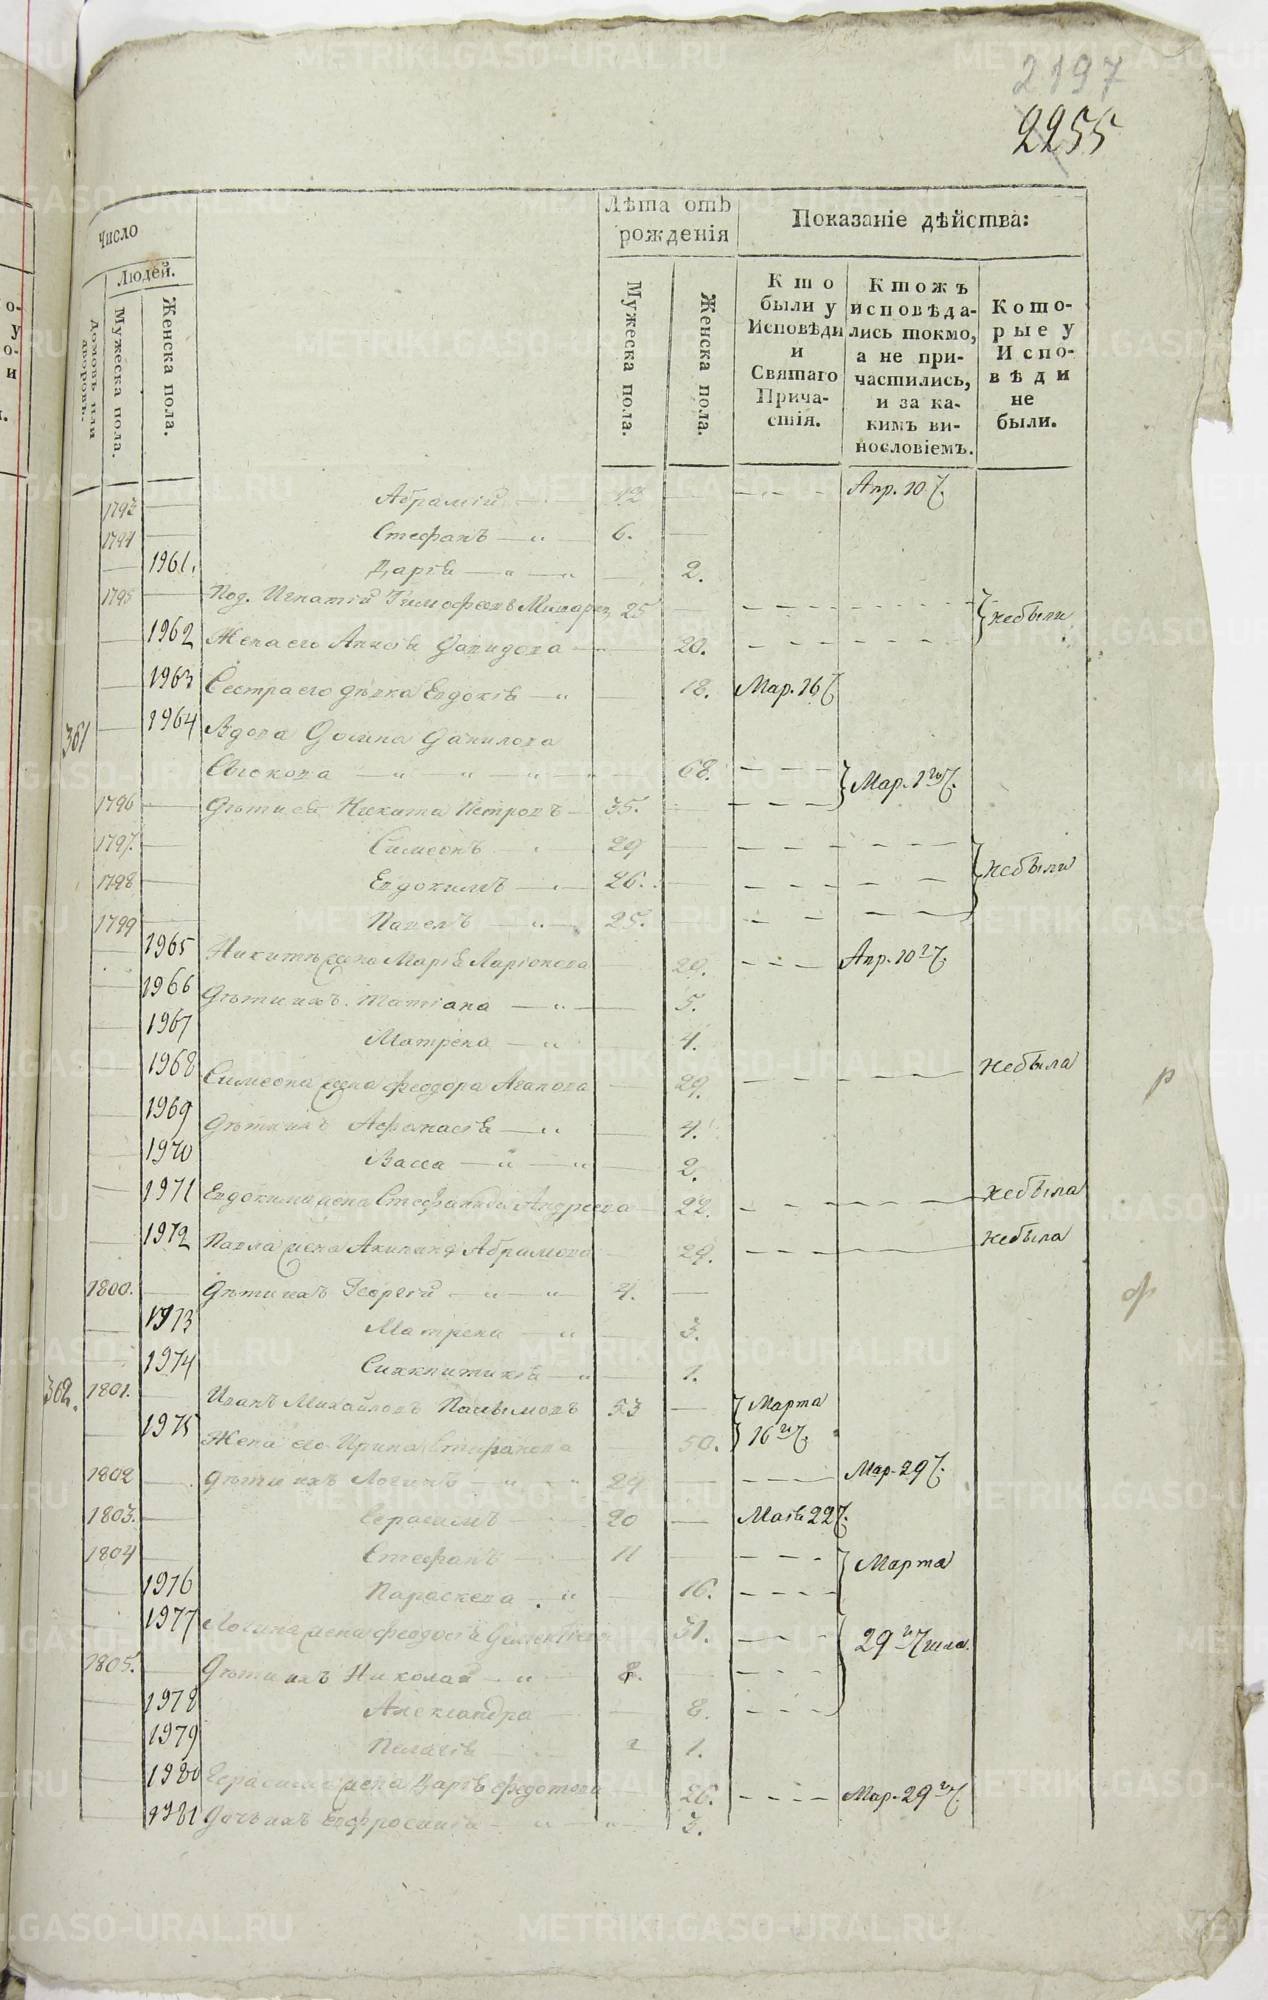 2197
2255
Число
Лѣта отъ рожденія
Показаніе дѣйства:
Людей.
домовъ или дворовъ.
Мужеска пола.
Женска пола.
Мужеска пола.
Женска пола.
Кто были у Исповѣди и Святаго Причастія.
Ктожъ исповѣдались токмо, а не причастились, и за какимъ винословіемъ.
Которые у Исповѣди не были.
1793 Абрамій 12 Апр. 10 Ч.
1794 Стефанъ — „ — 6.
1961. Дарія — „ — „ 2.
1795 Игнатій Тимофеевъ 25 небыли
1962 Жена его Данидова 20.
1963 Сестра его дѣвка Евдокія — „ 18. Мар. 16 Ч
361 1964 Вдова Данилова
— „ — „ — „ — „ 68. Мар. 1го Ч.
1796 Дѣти ея Никита Петровъ — 35.
1797. Симеонъ „ 29
1798 Евдокимъ — „ 26. небыли
1799 Павелъ — „ — 25.
1965 Никиты жена Марія Ларіонова 29. Апр. 10 Ч.
1966 Дѣти ихъ. Татіана — „ 5.
1967 Матрена — „ 4.
1968 Симеона жена Феодора Агапова 29. небыла
1969 Дѣти ихъ Афанасія — „ 4.
1970 Васса — „ — „ 2.
1971 Евдокима жена Стефанида Андреева 22. небыла
1972 Павла жена Акилина Абрамова 29. небыла
1800. Дѣти ихъ Георгій — „ — „ 4.
1973 Матрена — „ 3.
1974 — „ 1.
362. 1801. Иванъ Михайловъ 53 Марта
1975 Жена его Ирина Стефанова 50. 16 Ч.
1802 Дѣти ихъ Логинъ — „ — „ 29 Мар. 29 Ч.
1803. Герасимъ 20 Маія 22 Ч.
1804 Стефанъ 11 Марта
1976 Параскева „ 16.
1977 Логина жена Феодосія 31. 29 Числа.
1805. Дѣти ихъ Николай — „ 8.
1978 Александра 8.
1979 Пелагія 1.
1980 Герасима жена Дарія Федотова 26. Мар. 29 Ч.
1981 Дочь ихъ Евфросинія — „ — „ — 3.
р
ф
METRIKI.GASO-URAL.RU